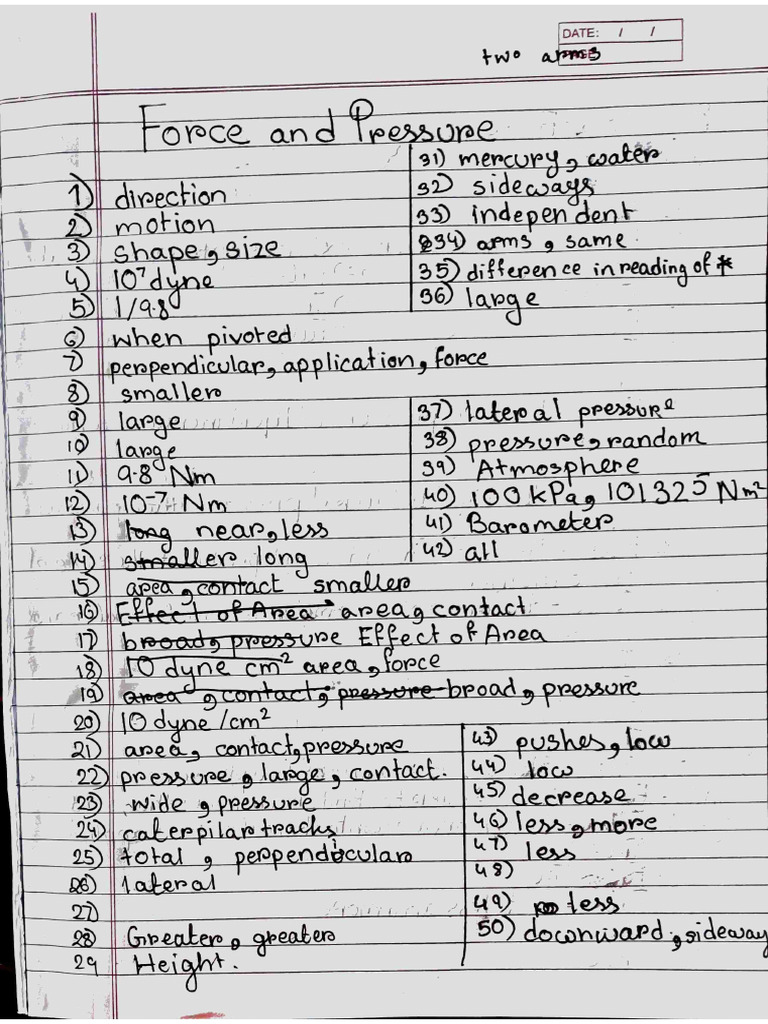 DATE: / /
two arms
Force and Pressure
1) direction
2) motion
3) shape, size
4) 10⁷ dyne
5) 1/9.8
6) when pivoted
7) perpendicular, application, force
8) smaller
9) large
10) large
11) 9.8 Nm
12) 10⁻⁷ Nm
13) long near, less
14) smaller long
15) area, contact smaller
16) Effect of Area area, contact
17) broad, pressure Effect of Area
18) 10 dyne cm² area, force
19) area, contact, pressure broad, pressure
20) 10 dyne/cm²
21) area, contact, pressure
22) pressure, large, contact.
23) wide, pressure
24) caterpilar tracks
25) total, perpendicular
26) lateral
27)
28) Greater, greater
29 Height.
31) mercury, water
32) sideways
33) independent
34) arms, same
35) difference in reading of *
36) large
37) lateral pressure
38) pressure, random
39) Atmosphere
40) 100 kPa, 101325 Nm²
41) Barometer
42) all
43) pushes, low
44) low
45) decrease
46) less, more
47) less
48)
49) less
50) downward, sideway